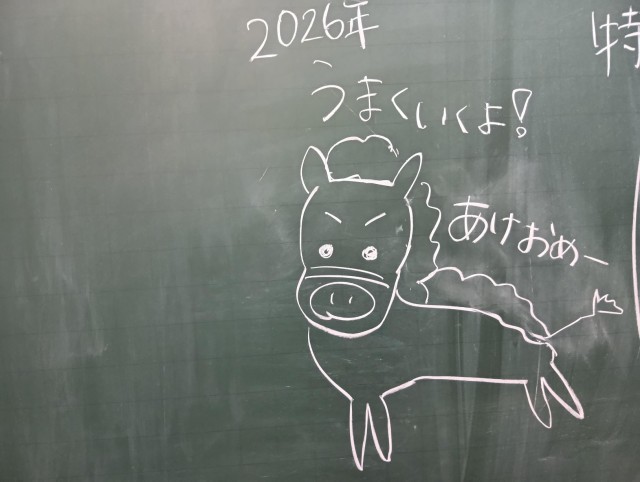 2026年
うまくいくよ!
あけおめー
特